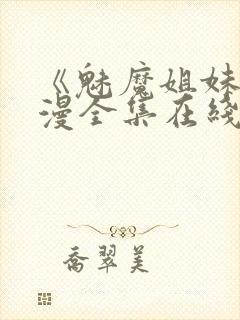 《魅魔姐妹
漫全集在綫
喬翠美